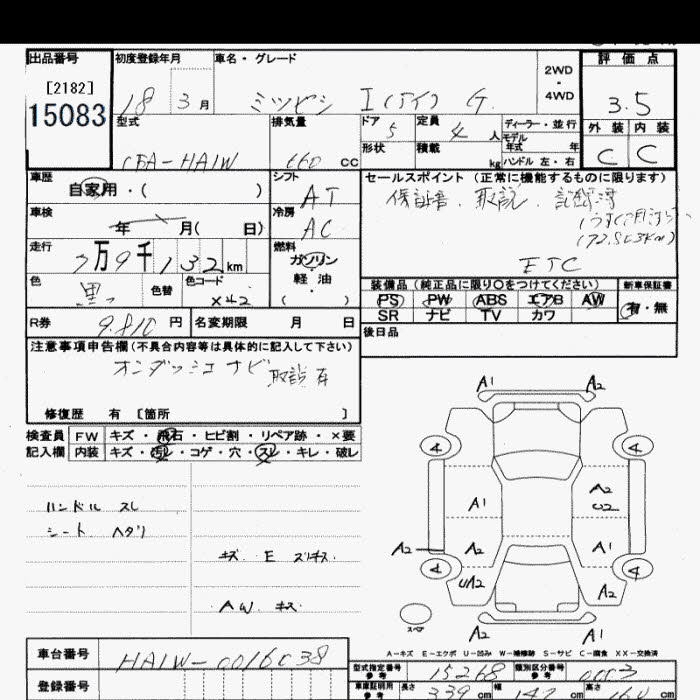 出品番号 初度登録年月 車名・グレード 2WD・4WD 評価点
[2182]
15083 18 3月 ミツビシ I(アイ) G 3.5
型式 排気量 ドア 5 定員 4人 ディーラー・並行 外装 内装
モデル年式 年
CBA-HA1W 660 cc 形状 積載 kg ハンドル 左・右 C C
車歴 シフト セールスポイント (正常に機能するものに限ります)
自家用・( ) AT 保証書.取説.記録簿
車検 冷房
年 月( 日) AC (72.563km)
走行 燃料
7万9千132km ガソリン ETC
色 色替 色コード 軽油 装備品 (純正品に限り○をつけてください) 新車保証書
黒 X42 ( ) PS PW ABS エアB AW 有・無
SR ナビ TV カワ
R券 9.810円 名変期限 月 日 後日品
注意事項申告欄(不具合内容等は具体的に記入して下さい)
オンダッシュナビ 取説有
修復歴 有 [箇所 ]
検査員 FW キズ・飛石・ヒビ割・リペア跡・×要
記入欄 内装 キズ・汚レ・コゲ・穴・スレ・キレ・破レ
A1 A2
4 4
ハンドル スレ
シート ヘタリ
A1 A2 U2
A2 A2 A1
キズ E
4 4
UA2 A2
AW キズ
スペア
A2 A1
A-キズ E-エクボ U-凹み W-補修跡 S-サビ C-腐食 XX-交換済
車台番号 HA1W-0016038
型式指定番号 参考 15268 類別区分番号 参考 0003
登録番号 車庫証明用 参考 長さ 339cm 幅 147cm 高さ 160cm